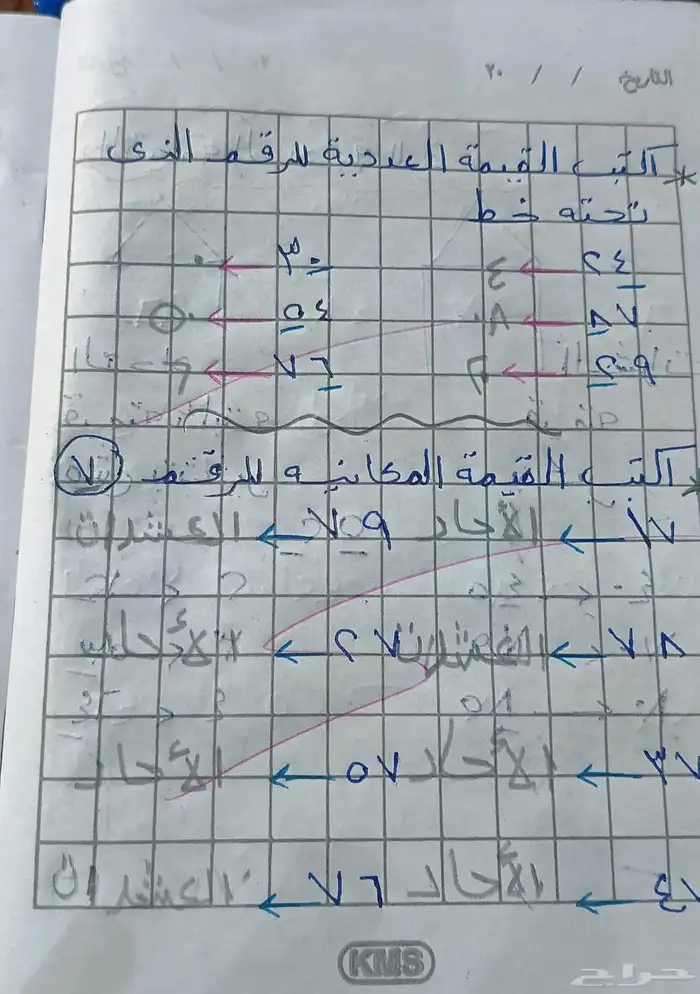 التاريخ / / ٢٠
* اكتب القيمة العددية للرقم الذي
تحته خط
٢٤ ← ٤ ٣٠ ← ٠
٨٧ ← ٨ ٥٤ ← ٥
٢٩ ← ٢ ٧٦ ← ٦
* اكتب القيمة المكانية للرقم ٧
١٧ ← الآحاد ٧٩ ← العشرات
٧٨ ← العشرات ٢٧ ← الأحاد
٣٧ ← الأحاد ٥٧ ← الأحاد
← الأحاد ٧٦ ← العشرات
KMS
حراج